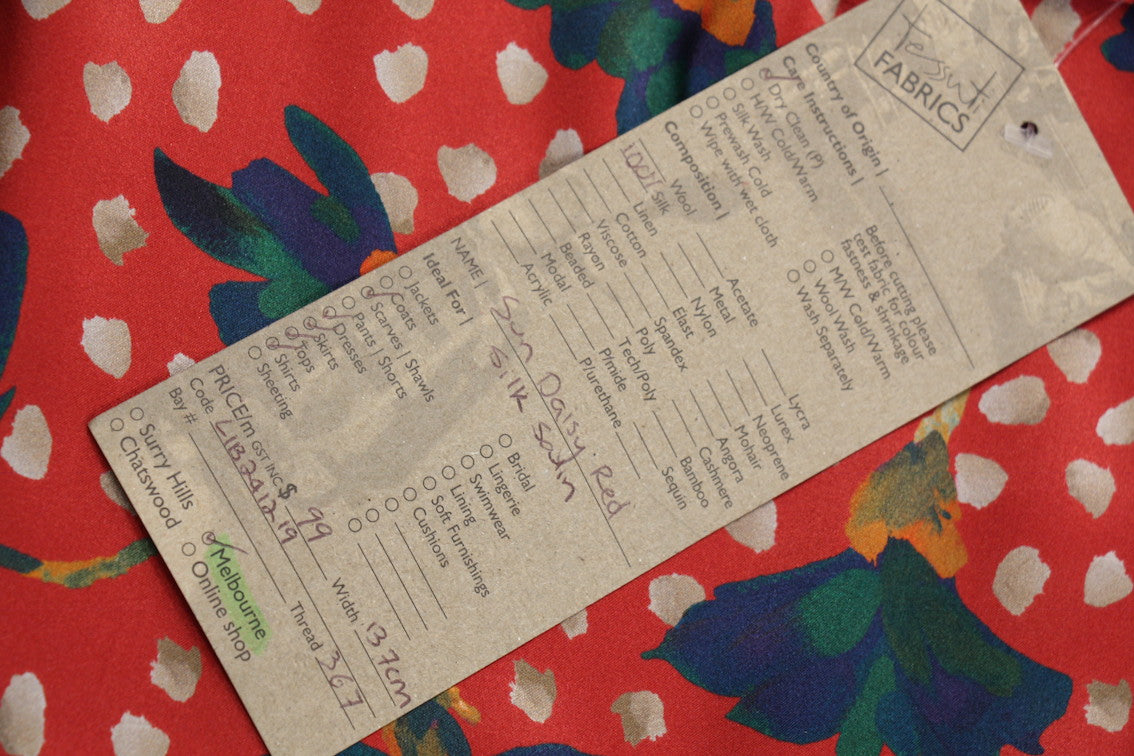 Tessuti
FABRICS
Country of Origin |
Care Instructions |
Dry Clean (P)
H/W Cold/Warm
Silk Wash
Prewash Cold
Wipe with wet cloth
Before cutting please
test fabric for colour
fastness & shrinkage
M/W Cold/Warm
Wool Wash
Wash Separately
Composition |
Wool
100% Silk
Linen
Cotton
Viscose
Rayon
Beaded
Modal
Acrylic
Acetate
Metal
Nylon
Elast
Spandex
Poly
Tech/Poly
P/mide
P/urethane
Lycra
Lurex
Neoprene
Mohair
Cashmere
Angora
Bamboo
Sequin
NAME | Sun Daisy Red
Silk Satin
Ideal For |
Jackets
Coats
Scarves | Shawls
Pants | Shorts
Dresses
Skirts
Tops
Shirts
Sheeting
Bridal
Lingerie
Swimwear
Lining
Soft Furnishings
Cushions
PRICE/m GST INC $ 99 Width 137cm
Code LIB241219 Thread 367
Bay #
Surry Hills Melbourne
Chatswood Online shop